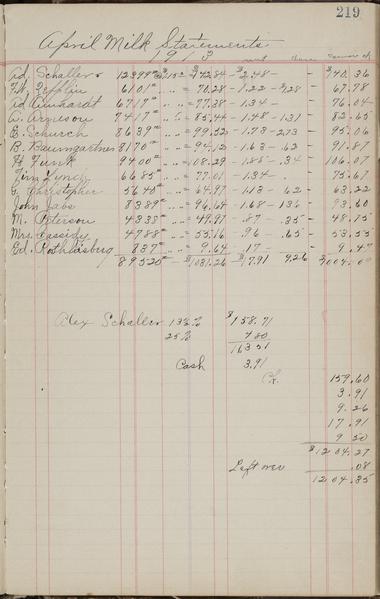 219
April Milk Statements
1913
Ad. Schaller 12399# $1.152 = $142.84 - $2.48 - - $140.36
6101# " = 70.28 - 1.22 - $1.28 67.78
Ad. Ainhardt 6717# " = 77.38 - 1.34 - - 76.04
A. Arneson 7417# " = 85.44 - 1.48 - 1.31 82.65
B. Schurch 8639# " = 99.52 - 1.73 - 2.73 - 95.06
B. Baumgartner 8170# " = 94.12 - 1.63 - 62 - 91.87
H Funk 9400# " = 108.29 - 1.88 - 34 - 106.07
Tim Lynch 6685# " = 77.01 - 1.34 - - 75.67
G. Christopher 5640# " = 64.97 - 1.13 - 62 - 63.22
John Jabs 8389# " = 96.64 - 1.68 - 1.36 - 93.60
M. Peterson 4338# " = 49.97 - .87 - .35 - 48.75
Mrs. Cassidy 4788# " = 55.16 - .96 - .65 - 53.55
Ed. Rothlisberg 837# " = 9.64 - .17 - - 9.47
89520# - $1031.26 - $17.91 9.26 - $1004.09
Alex Schaller 13¾% $158.71
25% 4.80
163.51
Cash 3.91
Ck. 159.60
3.91
9.26
17.91
9.50
$1204.27
Left over .08
1204.35